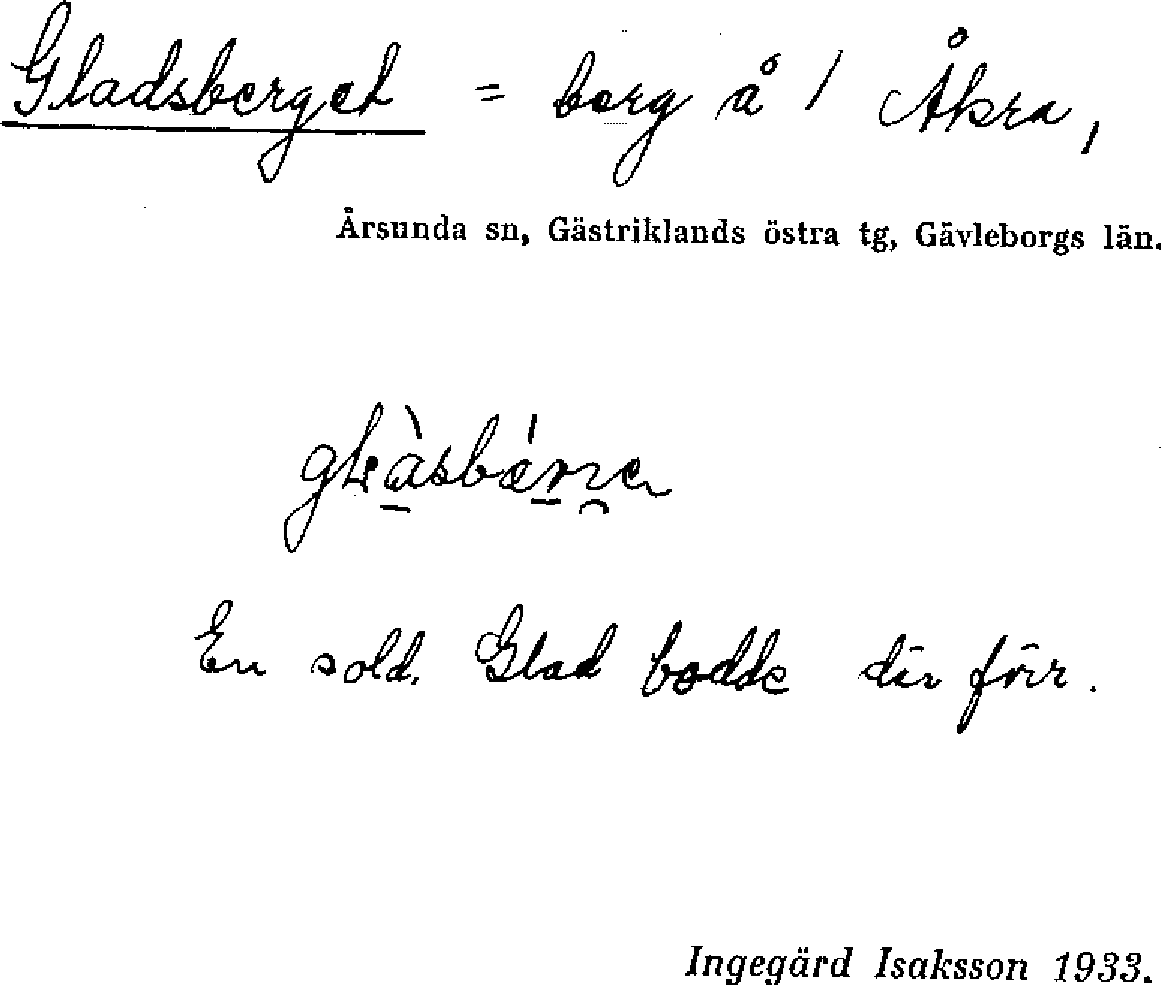 Gladsberget = berg å 1 Åkra,
Årsunda sn, Gästriklands östra tg, Gävleborgs län.
En sold. Glad bodde där förr.
Ingegärd Isaksson 1933.